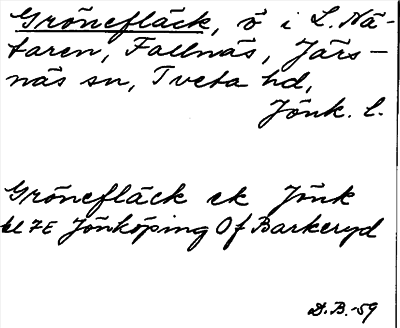 Grönefläck, ö i L. Nä-
taren, Fallnäs, Järs-
näs sn, Tveta hd,
Jönk. l.
Grönefläck ek Jönk
bl 7E Jönköping Of Barkeryd
D.B.-59